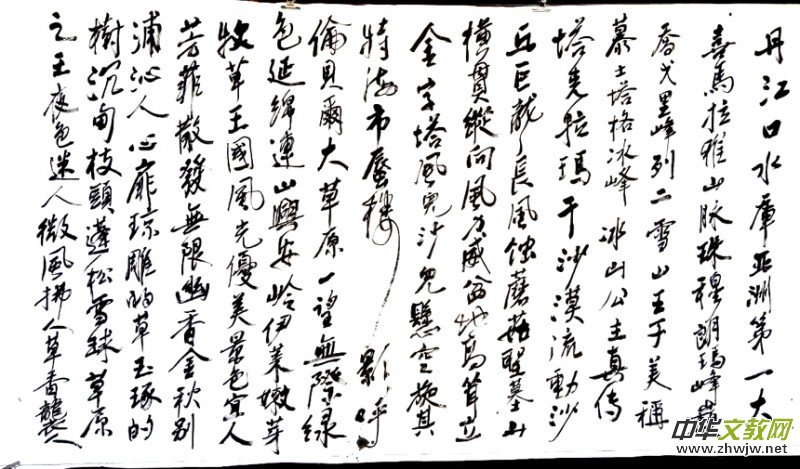 丹江口水庫亞洲第一大
喜馬拉雅山脈珠穆朗瑪峰
喬戈里峰列二雪山王子美稱
慕士塔格冰峰 冰山公主真傳
塔克拉瑪干沙漠流動沙
丘巨龍長風蝕蘑菇墓士山
橫貫縱向風力威盆地高聳立
金字塔風兒沙兒懸空旋其
特海市蜃樓 影呼
倫貝爾大草原一望無際綠
色延綿連山興安岭伊萊嫩芽
牧草王國風光優美景色宜人
芳菲散發無限幽香金秋别
浦沁人心扉琼雕的草玉琢的
樹沉甸枝頭蓬松雪球草原
之王夜色迷人微風拂人草香襲人
中华文教网
www.zhwjw.net